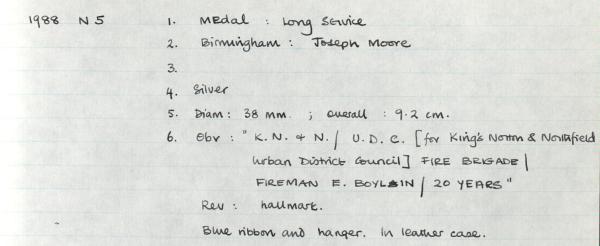 1988 N 5 1. Medal : Long Service
2. Birmingham : Joseph Moore
3.
4. Silver
5. Diam : 38 mm. ; overall : 9.2 cm.
6. Obv : " K. N. & N. / U. D. C. [for King's Norton & Northfield
Urban District Council] FIRE BRIGADE /
FIREMAN E. BOYLSIN / 20 YEARS "
Rev : hallmark.
Blue ribbon and hanger. In leather case.